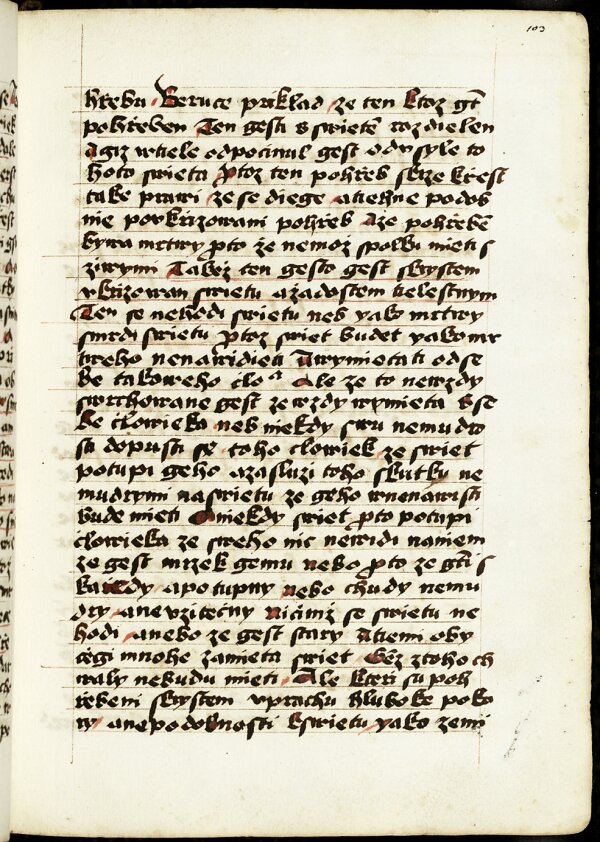 103
hřebu Beruce prziklad ze ten ktoz gt
pohřeben Ten gesti s swietē rozdielen
Agiz wtiele odpocinul gest odysyle to
hoto swieta ptoz ten pohřeb skrze křest
take prawi ze se diege atiehne podob
nie powkrizowani pohřeb Aze pohřebē
bywa mrtwy pto že nemoz spolku mieti s
ziwymi Takož ten gesto gest skrystem
vkrizowan swietu azadostem tielestnym
Ten se nehodi swietu neb yako mrtwy
smrdi swietu ptoz swiet bude yakomr
tweho nenawidieti Awymietati odse
be takoweho clo Ale ze to newzdy
swrchowane gest zewzdy wymieta s se
be cżlowieka neb niekdy swu nemudro
sti dopusti se toho clowiek ze swiet
potupi geho azasluzi toho skutky ne
mudrymi naswietu ze geho wnenawisti
bude mieti Aniekdy swiet pto potupi
clowieka ze sweho nic newidi naniem
ze gest mrzek gemu nebo pto ze gti s
apotupny nebo chudy nemu
dry anevzitecny nicimž se swietu ne
hodi anebo ze gest stary Atiemi oby
cżegi mnohe zamieta swiet Gēž ztoho ch
waly nebudu mieti Ale kteri su poh
řebeni skrystem vprachu hluboke poko
ry anepodobnosti kswietu yako zemi